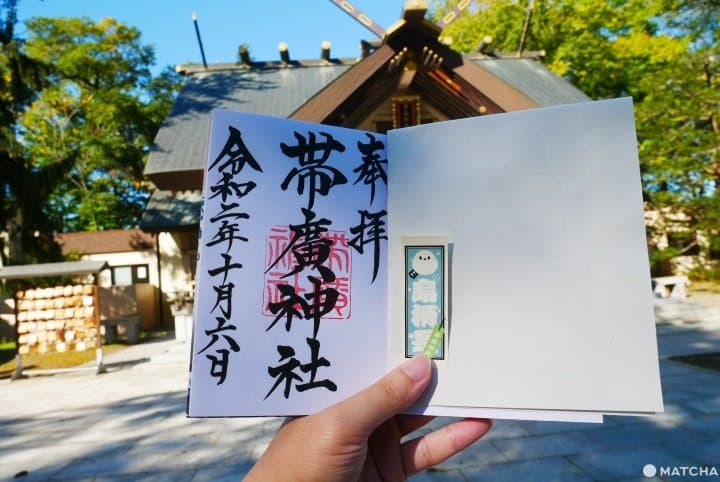 奉拝
帯廣神社
令和二年十月六日
MATCHA